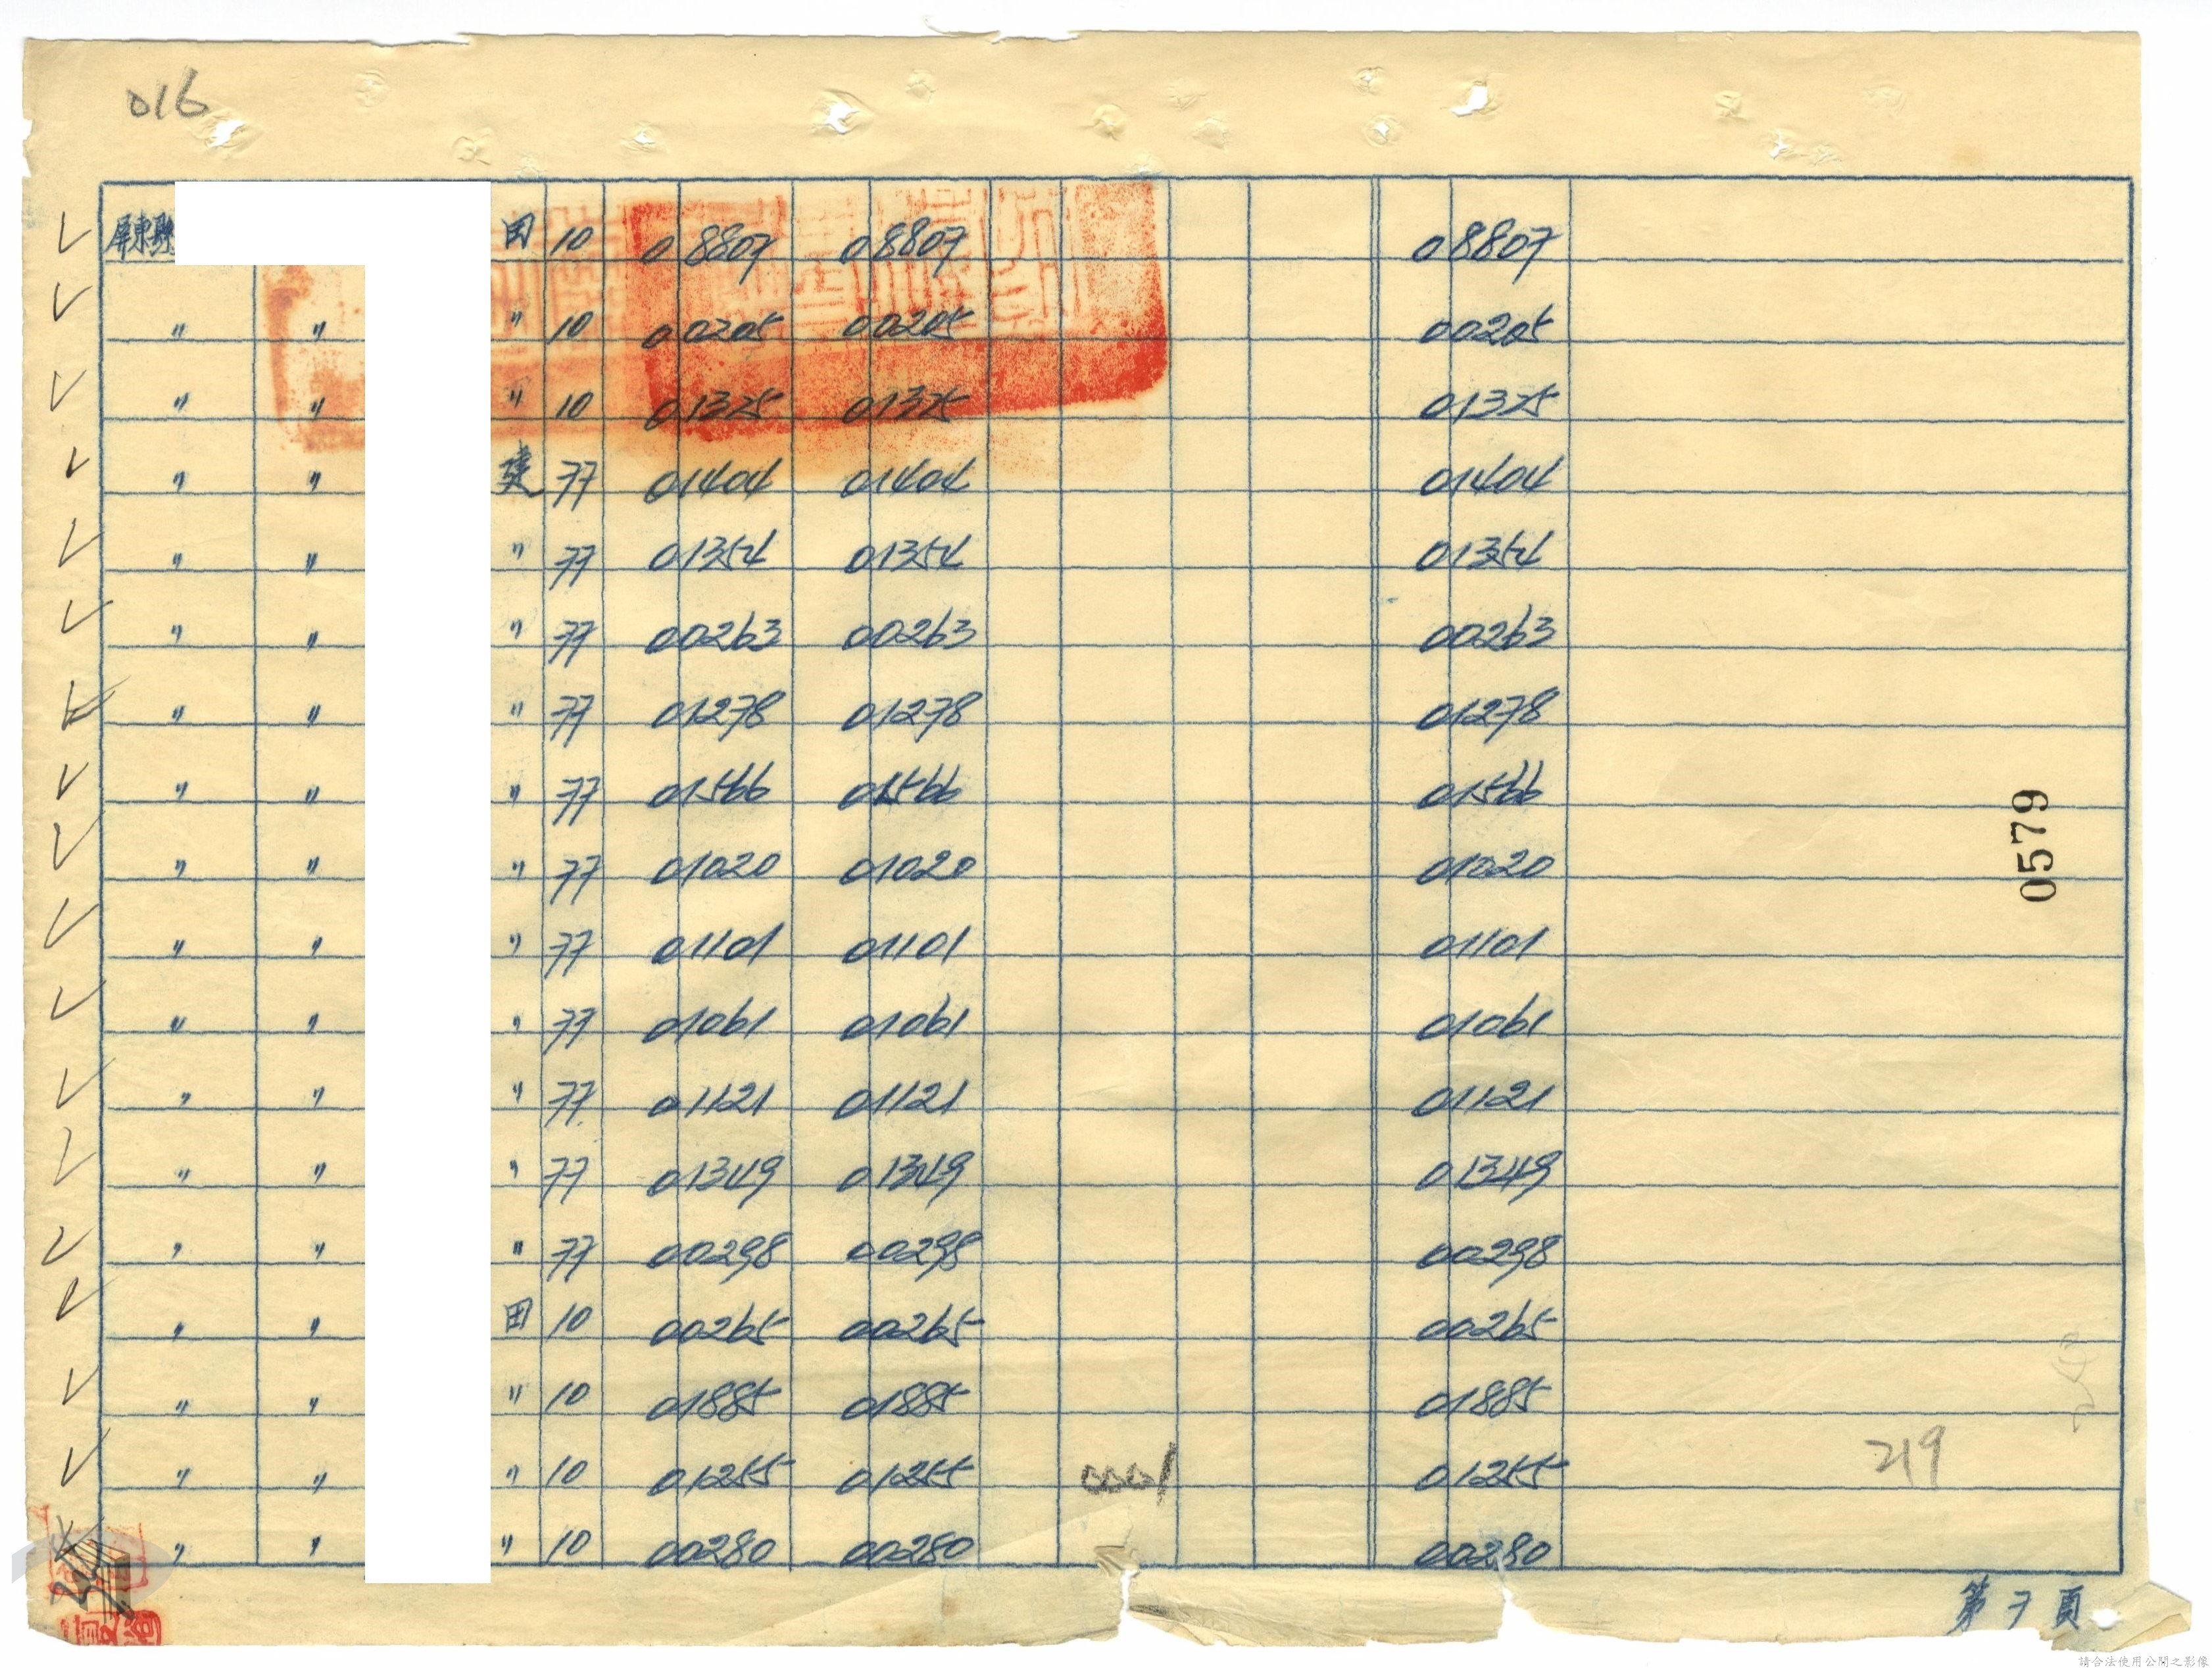 016
屏東縣 田 10 08807 08807 08807
〃 〃 〃 10 00205 00205 00205
〃 〃 〃 10 01325 01325 01325
〃 〃 建 77 01404 01404 01404
〃 〃 〃 77 01354 01354 01354
〃 〃 〃 77 00263 00263 00263
〃 〃 〃 77 01278 01278 01278
〃 〃 〃 77 01566 01566 01566
〃 〃 〃 77 01020 01020 01020
〃 〃 〃 77 01101 01101 01101
〃 〃 〃 77 01061 01061 01061
〃 〃 〃 77 01121 01121 01121
〃 〃 〃 77 01349 01349 01349
〃 〃 〃 77 00298 00298 00298
〃 〃 田 10 00265 00265 00265
〃 〃 〃 10 01885 01885 01885
〃 〃 〃 10 01255 01255 0001 01255
〃 〃 〃 10 00280 00280 00280
0579
219
第 7 頁
請合法使用公開之影像